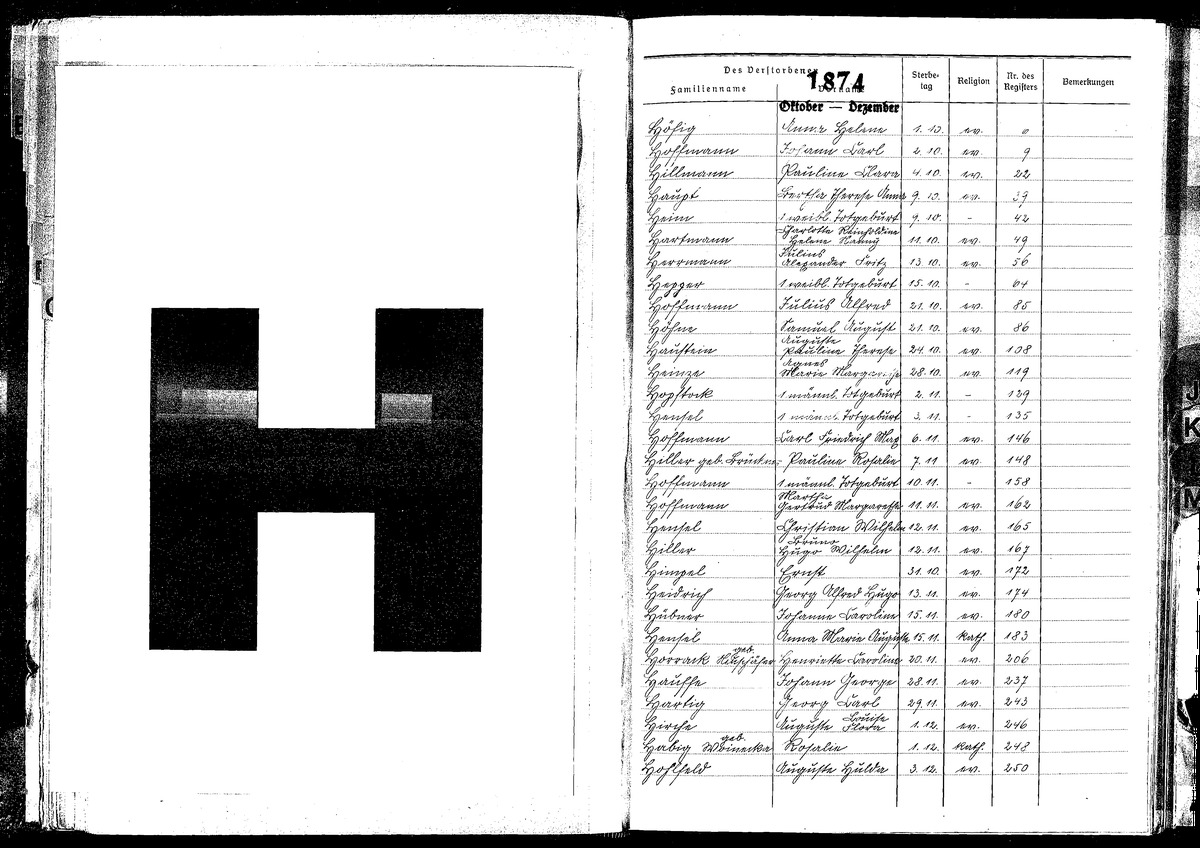 H
Des Verstorbenen
1874
Familienname Vorname Sterbe-tag Religion Nr. des Registers Bemerkungen
Oktober — Dezember
Höhig Anna Helene 1. 10. ev.
Hoffmann Johann Carl 2. 10. ev. 9
Hillmann Pauline Clara 4. 10. ev. 22
Haupt Bertha Therese Anna 9. 10. ev. 39
Heim 1 weibl. Totgeburt 9. 10. - 42
Hartmann Charlotte Reinholdine Helene Nanny 11. 10. ev. 49
Herrmann Julius Alexander Fritz 13. 10. ev. 56
Hepper 1 weibl. Totgeburt 15. 10. - 64
Hoffmann Julius Alfred 21. 10. ev. 85
Höhne Samuel August 21. 10. ev. 86
Haustein Auguste Pauline Therese 24. 10. ev. 108
Heinze Agnes Marie Margarethe 28. 10. ev. 119
Hopstock 1 männl. Totgeburt 2. 11. - 129
Hensel 1 männl. Totgeburt 3. 11. - 135
Hoffmann Carl Friedrich Max 6. 11. ev. 146
Hiller geb. Brückner Pauline Rosalie 7. 11 ev. 148
Hoffmann 1 männl. Totgeburt 10. 11. - 158
Hoffmann Martha Gertrud Margarethe 11. 11. ev. 162
Hensel Christian Wilhelm 12. 11. ev. 165
Hiller Bruno Hugo Wilhelm 12. 11. ev. 167
Himpel Ernst 31. 10. ev. 172
Heidrich Georg Alfred Hugo 13. 11. ev. 174
Hübner Johanne Caroline 15. 11. ev. 180
Hensel Anna Marie Auguste 15. 11. kath. 183
Horrack geb. Henriette Caroline 20. 11. ev. 206
Hauffe Johann George 28. 11. ev. 237
Hartig Georg Carl 29. 11. ev. 243
Hirche Auguste Louise Flora 1. 12. ev. 246
Habig geb. Woinecke Rosalie 1. 12. kath. 248
Hohlfeld Auguste Hulda 3. 12. ev. 250